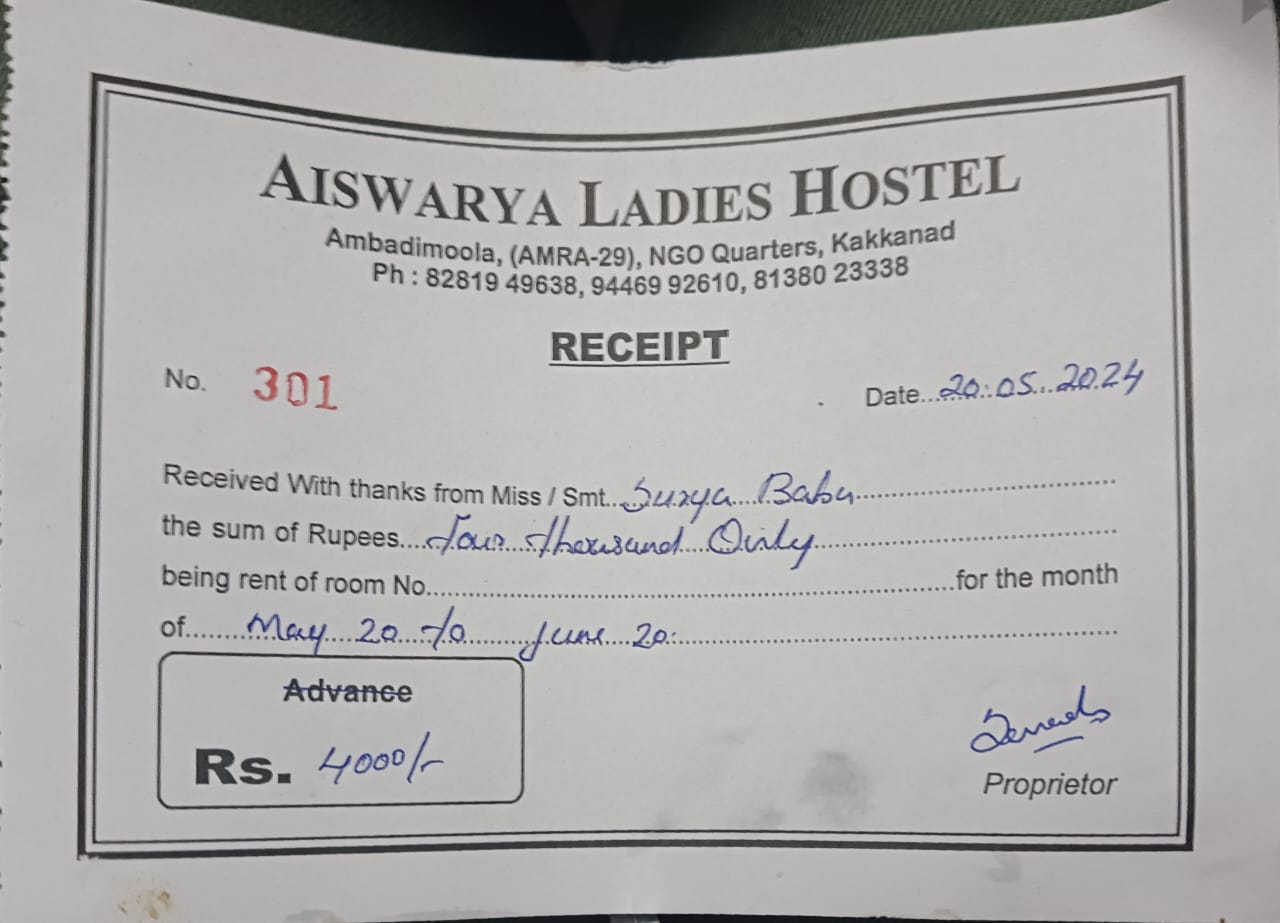 AISWARYA LADIES HOSTEL
Ambadimoola, (AMRA-29), NGO Quarters, Kakkanad
Ph : 82819 49638, 94469 92610, 81380 23338
RECEIPT
No. 301 Date...20.05...2024
Received With thanks from Miss / Smt...Surya Babu
the sum of Rupees....four thousand Only
being rent of room No. for the month
of May 20 to June 20.
Advance
Rs. 4000/-
Proprietor